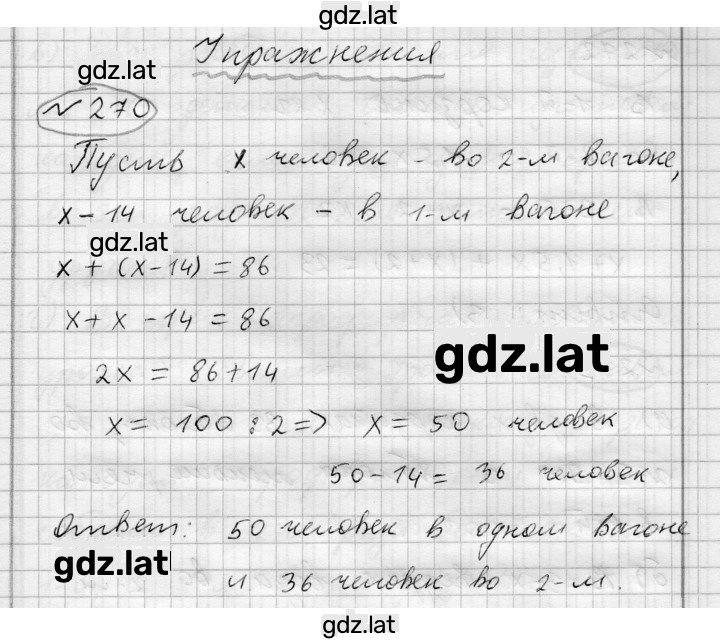 gdz.lat
Упражнения
gdz.lat
№ 270
Пусть x человек - во 2-м вагоне,
x - 14 человек - в 1-м вагоне
gdz.lat
x + (x - 14) = 86
x + x - 14 = 86
gdz.lat
2x = 86 + 14
x = 100 : 2 => x = 50 человек
50 - 14 = 36 человек
Ответ: 50 человек в одном вагоне
gdz.lat
и 36 человек во 2-м.
gdz.lat